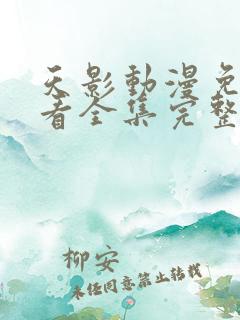 天影動漫免
看全集完整
柳安
未经同意禁止转载